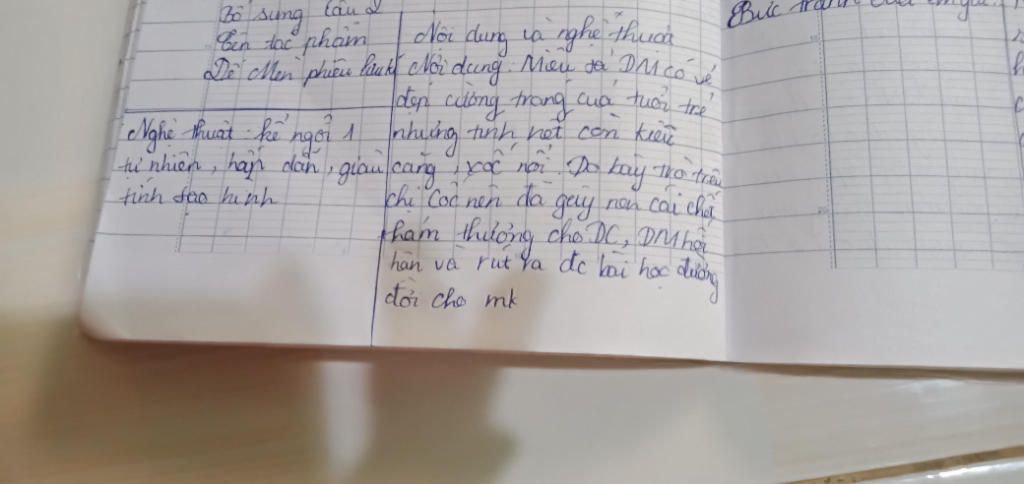 Bổ sung câu 2
Tên tác phẩm
Dế Mèn phiêu lưu ký
Nghệ thuật: kể ngôi 1
tự nhiên, hấp dẫn, giàu
tính tạo hình
Nội dung và nghệ thuật
Nội dung: Miêu tả DM có vẻ
đẹp cường tráng của tuổi trẻ
nhưng tính nết còn kiêu
căng, xốc nổi. Do bày trò trêu
chị Cốc nên đã gây nên cái chết
thảm thương cho DC, DM hối
hận và rút ra đc bài học đường
đời cho mk
Bức tranh của em gái